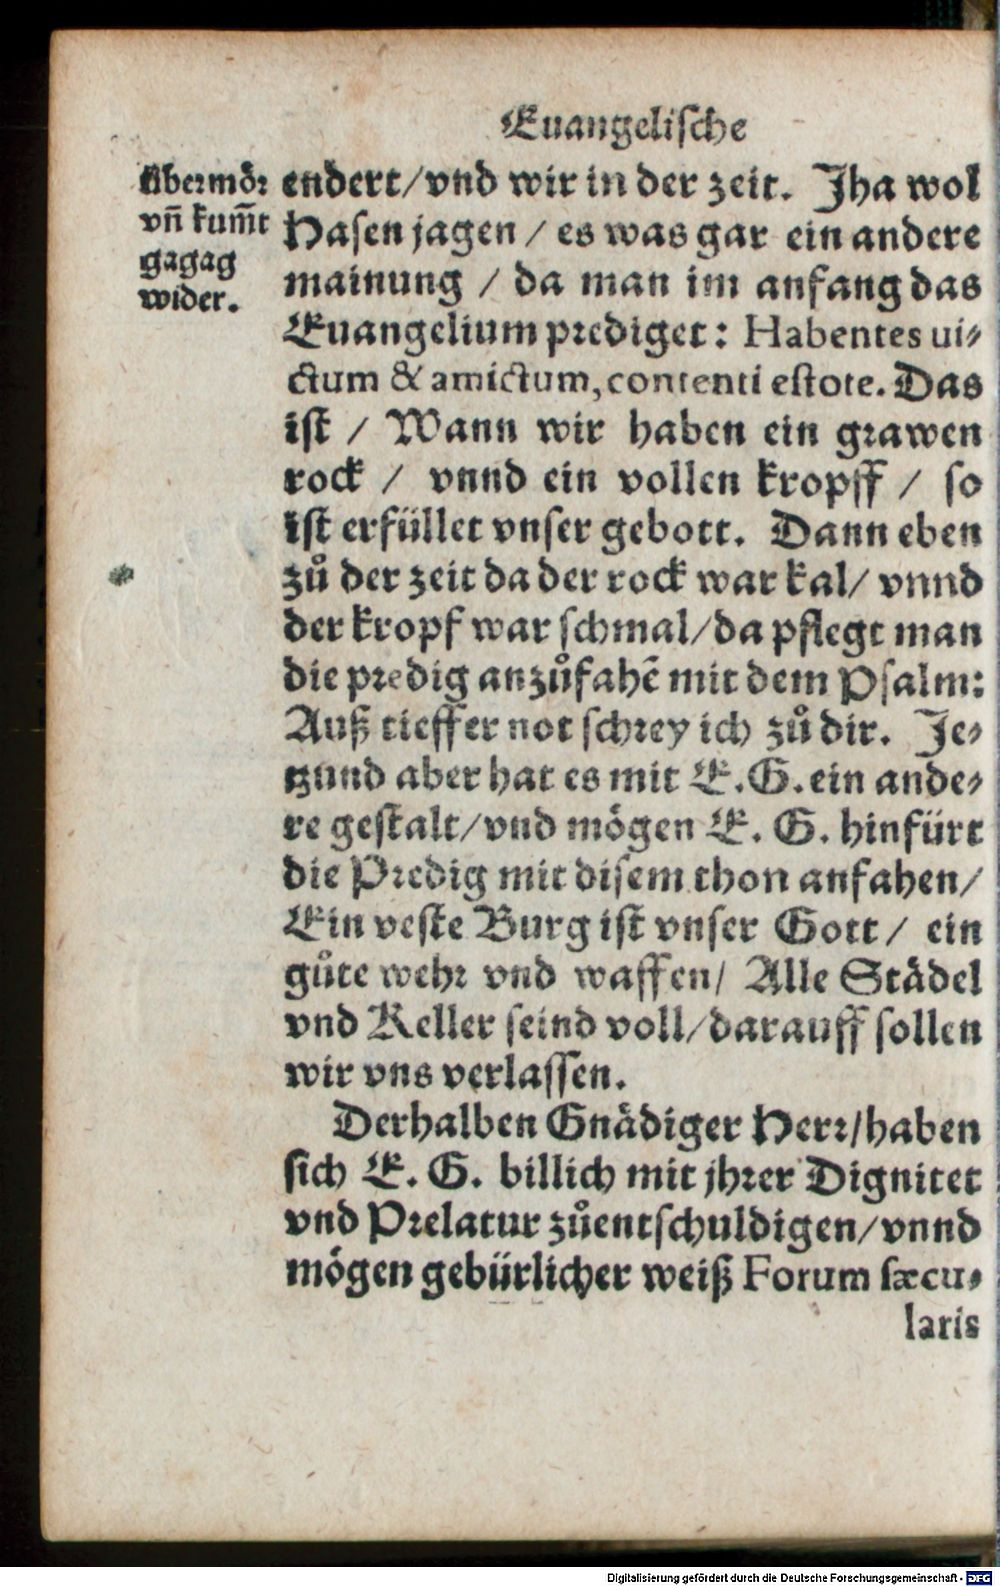 Euangelische
übermör
vn̄ kum̄t
gagag
wider.
endert/vnd wir in der zeit. Jha wol
Hasen jagen / es was gar ein andere
mainung / da man im anfang das
Euangelium prediget: Habentes ui⸗
ctum & amictum, contenti estote. Das
ist / Wann wir haben ein grawen
rock / vnnd ein vollen kropff / so
ist erfüllet vnser gebott. Dann eben
zů der zeit da der rock war kal/ vnnd
der kropf war schmal/da pflegt man
die predig anzůfahē mit dem Psalm:
Auß tieffer not schrey ich zů dir. Je⸗
tzund aber hat es mit E.G. ein ande⸗
re gestalt/vnd mögen E. G. hinfürt
die Predig mit disem thon anfahen/
Ein veste Burg ist vnser Gott/ ein
gůte wehr vnd waffen/ Alle Städel
vnd Keller seind voll/darauff sollen
wir vns verlassen.
Derhalben Gnädiger Herr/haben
sich E. G. billich mit jhrer Dignitet
vnd Prelatur zůentschuldigen/vnnd
mögen gebürlicher weiß Forum sæcu⸗
laris
Digitalisierung gefördert durch die Deutsche Forschungsgemeinschaft - DFG